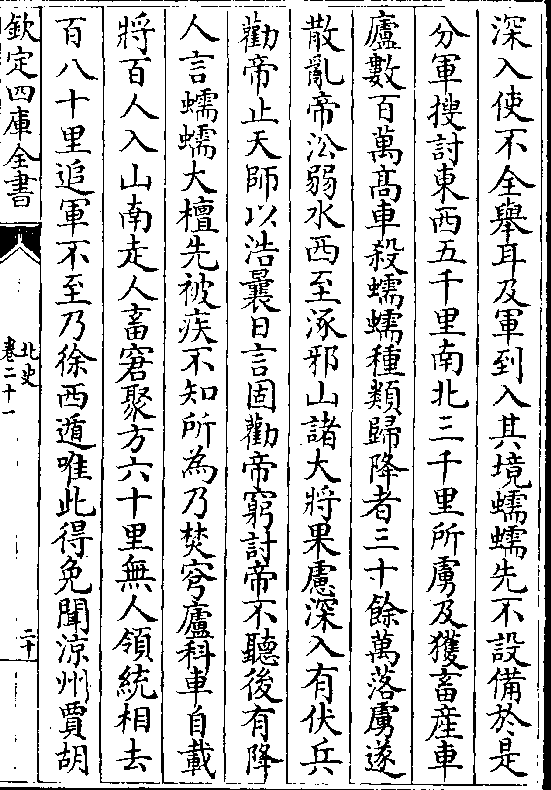 深入使不全舉耳及軍到入其境蠕蠕先不設備於是
分軍搜討東西五千里南北三千里所虜及獲畜產車
廬數百萬髙車殺蠕蠕種類歸降者三十餘萬落虜遂
散亂帝㳂弱水西至涿邪山諸大將果慮深入有伏兵
勸帝止天師以浩曩日言固勸帝窮討帝不聽後有降
人言蠕蠕大檀先被疾不知所為乃焚穹廬科車自載
將百人入山南走人畜窘聚方六十里無人領統相去
百八十里追軍不至乃徐西遁唯此得免聞涼州賈胡
欽定四庫全書
北史
卷二十一
二十